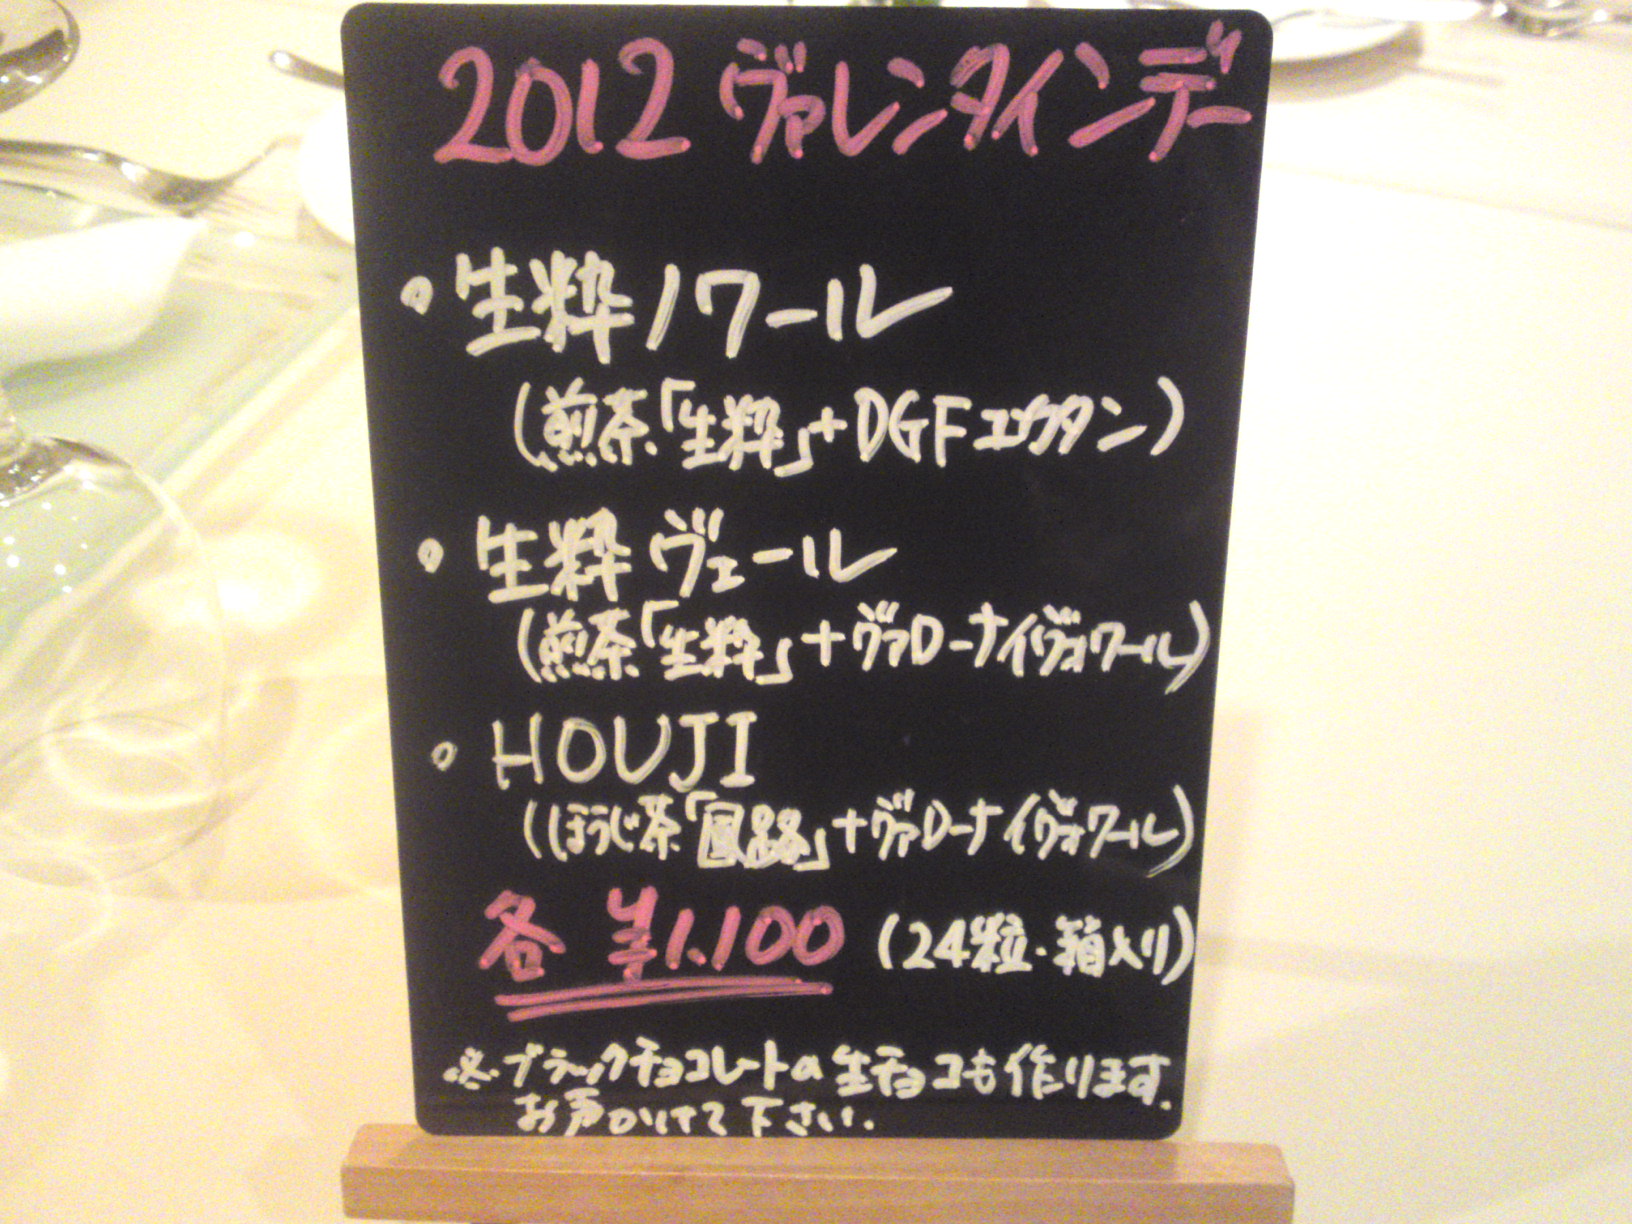 2012 ヴァレンタインデー
・生粋ノワール
(煎茶「生粋」+DGFエクワタン)
・生粋ヴェール
(煎茶「生粋」+ヴァローナイヴォワール)
・HOUJI
(ほうじ茶「鳳露」+ヴァローナイヴォワール)
各 ¥1,100 (24粒・箱入り)
※ブラックチョコレートの生チョコも作ります.
お声かけて下さい.